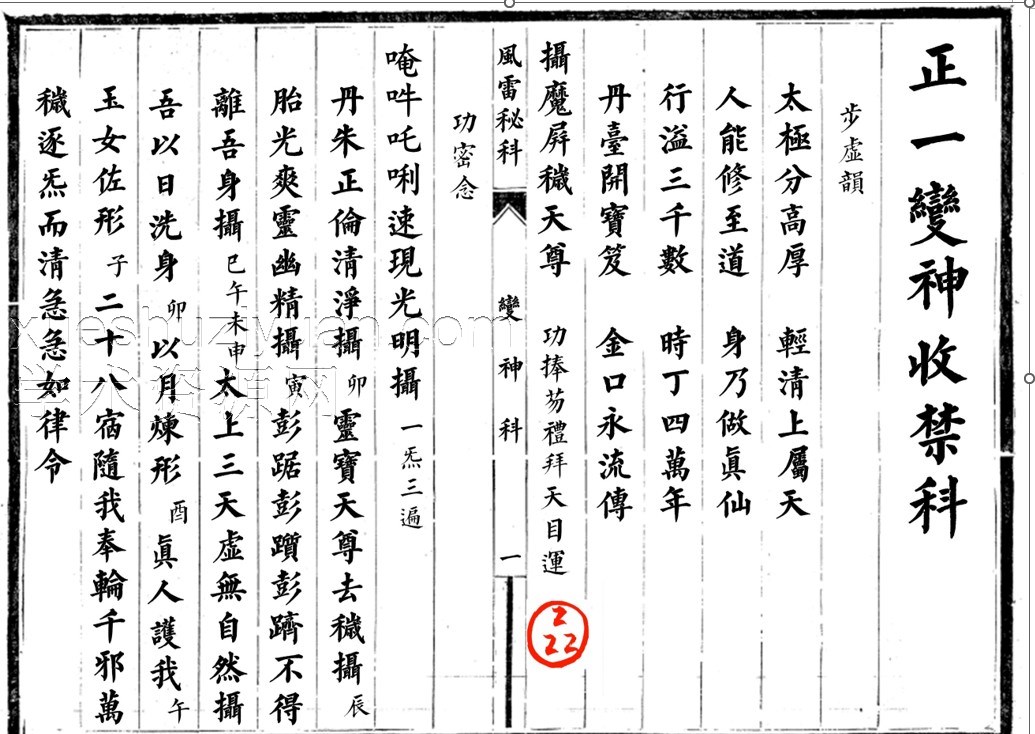 正一變神收禁科
步虛韻
太極分高厚 輕清上屬天
人能修至道 身乃做眞仙
行溢三千數 時丁四萬年
丹臺開寶笈 金口永流傳
攝魔屏穢天尊 功捧芴禮拜天目運
風雷秘科 變神科 一
功密念
唵吽吒唎速現光明攝 一炁三遍
丹朱正倫清淨攝 卯 靈寶天尊去穢攝 辰
胎光爽靈幽精攝 寅 彭踞彭躓彭躋不得
離吾身攝 巳午未申 太上三天虛無自然攝
吾以日洗身 卯 以月煉形 酉 眞人護我 午
玉女佐形 子 二十八宿隨我奉輪千邪萬
穢逐炁而清急急如律令
222
xueshuziyuan.com
学术资源网